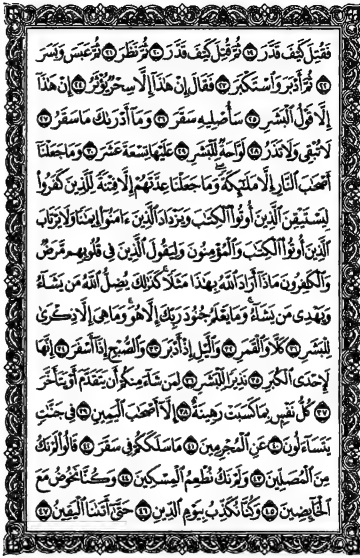 فَقُتِلَ كَيْفَ قَدَّرَ ١٩ ثُمَّ قُتِلَ كَيْفَ قَدَّرَ ٢٠ ثُمَّ نَظَرَ ٢١ ثُمَّ عَبَسَ وَبَسَرَ
٢٢ ثُمَّ أَدْبَرَ وَاسْتَكْبَرَ ٢٣ فَقَالَ إِنْ هَٰذَا إِلَّا سِحْرٌ يُؤْثَرُ ٢٤ إِنْ هَٰذَا
إِلَّا قَوْلُ الْبَشَرِ ٢٥ سَأُصْلِيهِ سَقَرَ ٢٦ وَمَا أَدْرَاكَ مَا سَقَرُ ٢٧
لَا تُبْقِي وَلَا تَذَرُ ٢٨ لَوَّاحَةٌ لِلْبَشَرِ ٢٩ عَلَيْهَا تِسْعَةَ عَشَرَ ٣٠ وَمَا جَعَلْنَا
أَصْحَابَ النَّارِ إِلَّا مَلَائِكَةً وَمَا جَعَلْنَا عِدَّتَهُمْ إِلَّا فِتْنَةً لِلَّذِينَ كَفَرُوا
لِيَسْتَيْقِنَ الَّذِينَ أُوتُوا الْكِتَابَ وَيَزْدَادَ الَّذِينَ ءَامَنُوا إِيمَانًا وَلَا يَرْتَابَ
الَّذِينَ أُوتُوا الْكِتَابَ وَالْمُؤْمِنُونَ وَلِيَقُولَ الَّذِينَ فِي قُلُوبِهِمْ مَرَضٌ
وَالْكَافِرُونَ مَاذَا أَرَادَ اللَّهُ بِهَٰذَا مَثَلًا كَذَٰلِكَ يُضِلُّ اللَّهُ مَنْ يَشَاءُ
وَيَهْدِي مَنْ يَشَاءُ وَمَا يَعْلَمُ جُنُودَ رَبِّكَ إِلَّا هُوَ وَمَا هِيَ إِلَّا ذِكْرَىٰ
لِلْبَشَرِ ٣١ كَلَّا وَالْقَمَرِ ٣٢ وَاللَّيْلِ إِذْ أَدْبَرَ ٣٣ وَالصُّبْحِ إِذَا أَسْفَرَ ٣٤ إِنَّهَا
لَإِحْدَى الْكُبَرِ ٣٥ نَذِيرًا لِلْبَشَرِ ٣٦ لِمَنْ شَاءَ مِنْكُمْ أَنْ يَتَقَدَّمَ أَوْ يَتَأَخَّرَ
٣٧ كُلُّ نَفْسٍ بِمَا كَسَبَتْ رَهِينَةٌ ٣٨ إِلَّا أَصْحَابَ الْيَمِينِ ٣٩ فِي جَنَّاتٍ
يَتَسَاءَلُونَ ٤٠ عَنِ الْمُجْرِمِينَ ٤١ مَا سَلَكَكُمْ فِي سَقَرَ ٤٢ قَالُوا لَمْ نَكُ
مِنَ الْمُصَلِّينَ ٤٣ وَلَمْ نَكُ نُطْعِمُ الْمِسْكِينَ ٤٤ وَكُنَّا نَخُوضُ مَعَ
الْخَائِضِينَ ٤٥ وَكُنَّا نُكَذِّبُ بِيَوْمِ الدِّينِ ٤٦ حَتَّىٰ أَتَانَا الْيَقِينُ ٤٧